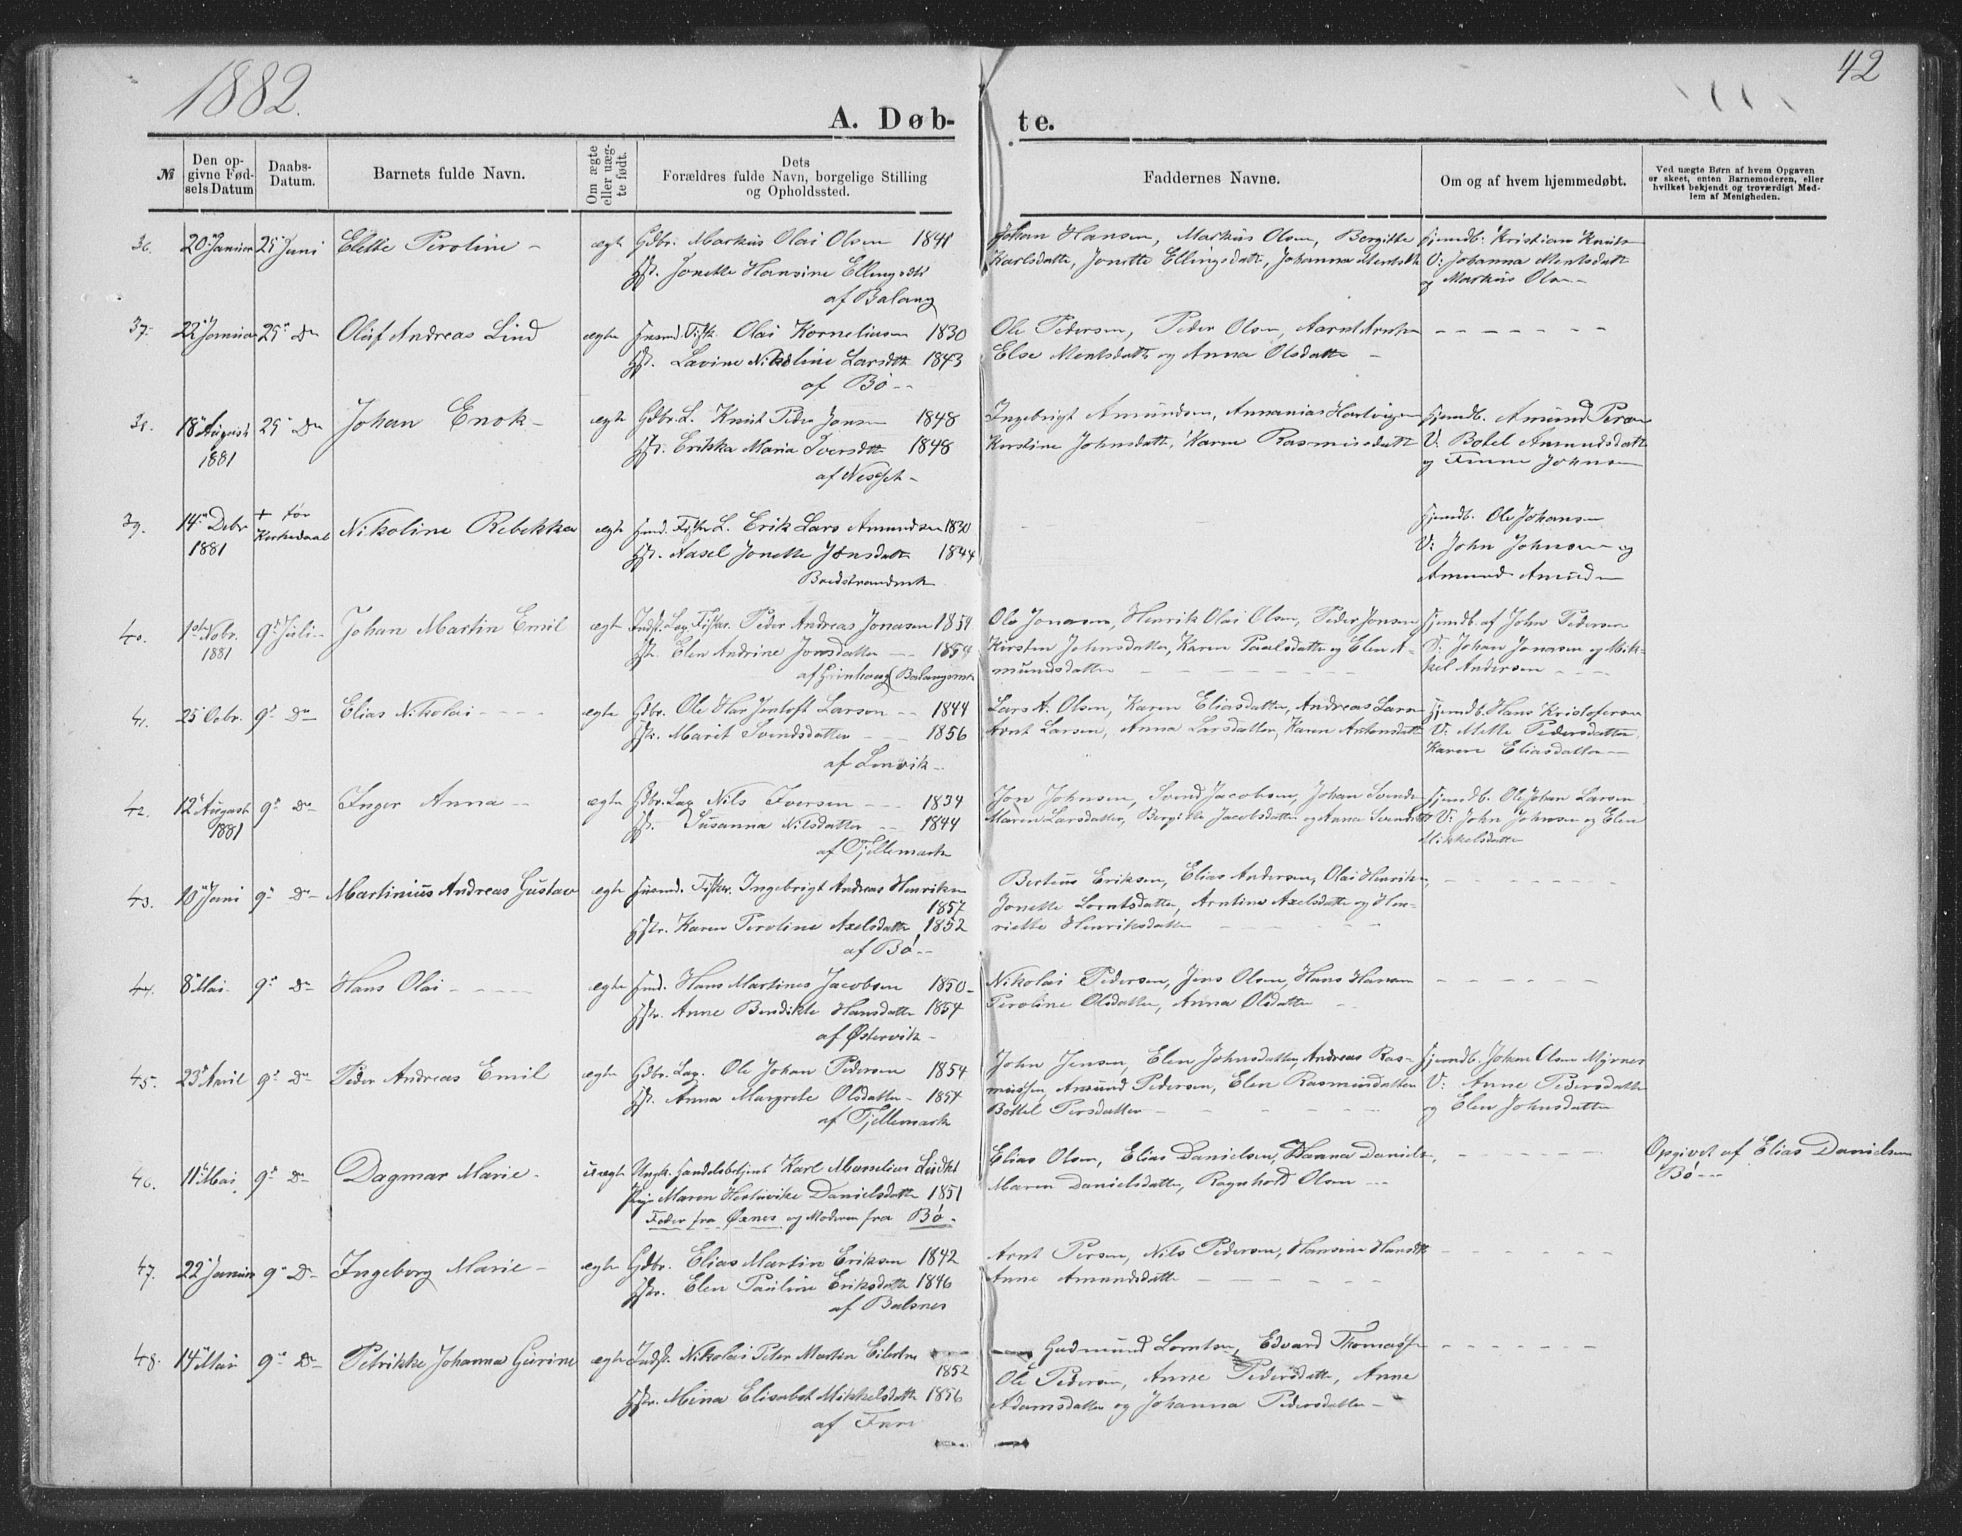 1882.
42
A. Døb-
te.
№
Den op-
givne Fød-
sels Datum
Daabs-
Datum.
Barnets fulde Navn.
Om ægte
eller uæg-
te født.
Dets
Forældres fulde Navn, borgelige Stilling
og Opholdssted.
Faddernes Navne.
Om og af hvem hjemmedøbt.
Ved uægte Børn af hvem Opgaven
er skeet, enten Barnemoderen, eller
hvilket bekjendt og troværdigt Med-
lem af Menigheden.
36. 20 Januar 25 Juni Elette Peroline - ægte Gdbr. Markus Olai Olsen 1841 Johan Hansen, Markus Olsen, Bergitte Hjemdb. Kristian
Jonette Hansine Ellingsdtr Karlsdatter, Jonette Ellingsdatt, Johanna V: Johanna Mentsdatt
af Balang og Markus Olsen
37. 22 Januar 25 Do Olaf Andreas Lind ægte Olai Korneliusen 1830 Ole Pedersen, Peder Olsen,
Lavine Nikoline Larsdtt 1843 Else Mentsdatt og Anna Olsdatter
af Bø
38. 18 August 25 Do Johan Enok ægte Gdbr. L. Knut Peder Jonsen 1848 Ingebrigt Amundsen, Annanias Hartvigsen Hjemdb. Amund
1881 Erikka Maria Iversdtt 1848 Kirstine Johnsdatt, Karen Rasmusdatt V: Botel Amundsdatt
af og Johnsen
39. 14 Debr + før Nikoline Rebekka ægte L. Erik Lars Amundsen 1830 Hjemdb. Ole Johansen
1881 Kirkedaab Aasel Jonette Jonsdatt 1844 V: John Johnsen og
Amund
40. 1ste Nobr. 9 Juli Johan Martin Emil ægte Indst. Lag. Fisker. Peder Andreas Jonasen 1854 Ole Jonasen, Henrik Olai Olsen, Peder Jonsen Hjemdb. af John Pedersen
1881 Elen Andrine Jonsdatter 1854 Kirsten Johnsdatter, Karen Paalsdatter og Elen A- V: Johan Jonasen og Mik-
mundsdatter kel Andersen
41. 25 9 Do Elias Nikolai ægte Gdbr. Ole Larsen 1844 Lars A. Olsen, Karen Eliasdatter, Andreas Hjemdb. Hans Kristofersen
Marit Svendsdatter 1856 Arnt Larsen, Anna Larsdatter, Karen Antonsdatt V: Mette Pedersdatter,
af Lenvik Karen Eliasdatter
42. 12 August 9 Do Inger Anna ægte Gdbr. Lag Nils Iversen 1834 Jon Johnsen, Svend Jacobsen, Johan Hjemdb. Ole Johan Larsen
1881 Susanna Nilsdatter 1844 Maren Larsdatter, Bergitte Jacobsdatter og Anna V: John Johnsen og Elen
af Tjellemark Mikkelsdatter
43. 10 Juni 9 Do Martinius Andreas Gustav ægte Fisker. Ingebrigt Andreas Henriksen Bertius Eriksen, Elias Andersen, Olai
1857 Jonette Lorntsdatter, Arntine Axelsdatter og Hen-
Karen Peroline Axelsdatter 1852 riette Henriksdatter
af Bø
44. 8 Mai 9 Do Hans Olai ægte Hans Martines Jacobsen 1850 Nikolai Pedersen, Jens Olsen, Hans Hansen
Anne Bendikte Hansdatter 1854 Peroline Olsdatter, Anna Olsdatter
af Østervik
45. 23 April 9 Do Peder Andreas Emil ægte Gdbr. Lag. Ole Johan Pedersen 1854 John Jensen, Elen Johnsdatter, Andreas Ras- Hjemdb. Johan Olsen Myrnes
Anna Margrete Olsdatter 1854 mussen, Amund Pedersen, Elen Rasmusdatter V: Anne Pedersdatter
af Tjellemark Bottel Persdatter og Elen Johnsdatter
46. 11 Mai 9 Do Dagmar Marie uægte Ungk. Handelsbetjent Karl Marselius Elias Olsen, Elias Danielsen, Hanna Opgivet af Elias Danielsen
Pige Maren Danielsdatter 1851 Maren Danielsdatter, Ragnhold Olsen Bø
Fader fra Øxnes og Moderen fra Bø
47. 22 Januar 9 Do Ingeborg Marie ægte Gdbr. Elias Martin Eriksen 1842 Arnt Persen, Nils Pedersen, Hansine
Elen Pauline Eriksdatter 1846 Anne Amundsdatter
af Balsnes
48. 14 Mai 9 Do Petrikke Johanna Gurine ægte Indst. Nikolai Peter Martin Gudmund Lorntsen, Edvard
1852 Ole Pedersen, Anne Pedersdatter, Anne
Mina Elisabet Mikkelsdatter 1856 Adamsdatter og Johanna Pedersdatter
af